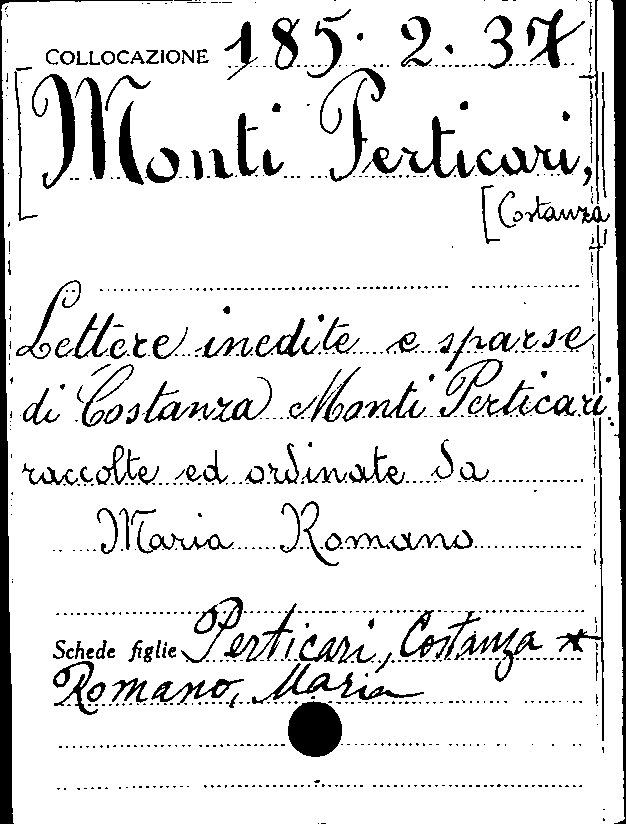 COLLOCAZIONE 185. 2. 37
[Monti Perticari,
[Costanza
Lettere inedite e sparse
di Costanza Monti Perticari
raccolte ed ordinate da
Maria Romano
Schede figlie Perticari, Costanza *
Romano, Maria